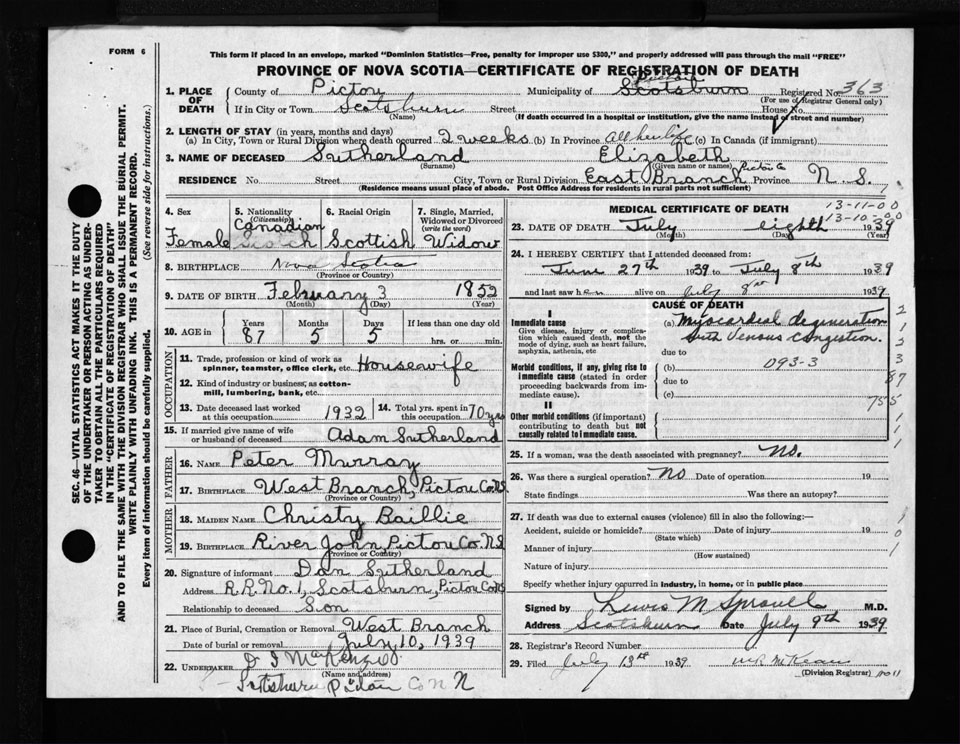 FORM 6
This form if placed in an envelope, marked "Dominion Statistics—Free, penalty for improper use $300," and properly addressed will pass through the mail "FREE"
PROVINCE OF NOVA SCOTIA—CERTIFICATE OF REGISTRATION OF DEATH
SEC. 46—VITAL STATISTICS ACT MAKES IT THE DUTY
OF THE UNDERTAKER OR PERSON ACTING AS UNDER-
TAKER TO OBTAIN ALL THE PARTICULARS REQUIRED
IN THE "CERTIFICATE OF REGISTRATION OF DEATH"
AND TO FILE THE SAME WITH THE DIVISION REGISTRAR WHO SHALL ISSUE THE BURIAL PERMIT.
WRITE PLAINLY WITH UNFADING INK. THIS IS A PERMANENT RECORD.
Every item of information should be carefully supplied. (See reverse side for instructions.)
1. PLACE OF DEATH
County of Pictou Municipality of Pictou Scotsburn Registered No. 363
(For use of Registrar General only)
If in City or Town Scotsburn Street House No.
(Name) (If death occurred in a hospital or institution, give the name instead of street and number)
2. LENGTH OF STAY (in years, months and days)
(a) In City, Town or Rural Division where death occurred 2 weeks (b) In Province All her life (c) In Canada (if immigrant)
3. NAME OF DECEASED Sutherland Elizabeth
(Surname) (Given name or names)
RESIDENCE No. Street City, Town or Rural Division East Branch Pictou Co Province N. S.
(Residence means usual place of abode. Post Office Address for residents in rural parts not sufficient)
4. Sex 5. Nationality (Citizenship) 6. Racial Origin 7. Single, Married, Widowed or Divorced (write the word)
Canadian
Female Scotch Scottish Widow
8. BIRTHPLACE Nova Scotia
(Province or Country)
9. DATE OF BIRTH February 3 1852
(Month) (Day) (Year)
10. AGE in Years Months Days If less than one day old
87 5 5 hrs. or min.
OCCUPATION
11. Trade, profession or kind of work as spinner, teamster, office clerk, etc. Housewife
12. Kind of industry or business, as cotton-mill, lumbering, bank, etc.
13. Date deceased last worked at this occupation 1932 14. Total yrs. spent in this occupation 70 yrs
15. If married give name of wife or husband of deceased Adam Sutherland
FATHER
16. NAME Peter Murray
17. BIRTHPLACE West Branch, Pictou Co. N.S.
(Province or Country)
MOTHER
18. MAIDEN NAME Christy Baillie
19. BIRTHPLACE River John, Pictou Co. N.S
(Province or Country)
20. Signature of informant Dan Sutherland
Address R.R. No. 1, Scotsburn, Pictou Co NS
Relationship to deceased Sion
21. Place of Burial, Cremation or Removal West Branch
Date of burial or removal July 10, 1939
22. UNDERTAKER D I MacKenzie
(Name and address)
Scotsburn Pictou Co N
MEDICAL CERTIFICATE OF DEATH
13-11-00
13-10-00
23. DATE OF DEATH July eighth 1939
(Month) (Day) (Year)
24. I HEREBY CERTIFY that I attended deceased from:
June 27th 1939 to July 8th 1939
and last saw her alive on July 8th 1939
CAUSE OF DEATH
I
Immediate cause
Give disease, injury or complication which caused death, not the mode of dying, such as heart failure, asphyxia, asthenia, etc
(a) Myocardial degeneration
with Venous congestion.
due to
Morbid conditions, if any, giving rise to immediate cause (stated in order proceeding backwards from immediate).
(b) 093-3
due to
(c)
II
Other morbid conditions (if important) contributing to death but not causally related to immediate cause.
25. If a woman, was the death associated with pregnancy? No.
26. Was there a surgical operation? No Date of operation 19
State findings Was there an autopsy?
27. If death was due to external causes (violence) fill in also the following:—
Accident, suicide or homicide? Date of injury 19
(State which)
Manner of injury
(How sustained)
Nature of injury
Specify whether injury occurred in industry, in home, or in public place
Signed by Lewis M Sproull M.D.
Address Scotsburn Date July 9th 1939
28. Registrar's Record Number
29. Filed July 13th 1939 McKean
(Division Registrar)